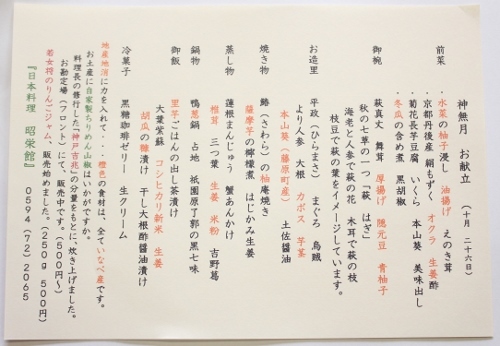 神無月　お献立　（十月　二十六日）
前菜
・水菜の柚子浸し　油揚げ　えのき茸
・京都丹後産　絹もずく　オクラ　生姜酢
・菊花長芋豆腐　いくら　本山葵　美味出し
・冬瓜の含め煮　黒胡椒
御椀
萩真丈　舞茸　厚揚げ　隠元豆　青柚子
秋の七草の一つ「萩　はぎ」
海老と人参で萩の花　木耳で萩の枝
枝豆で萩の葉をイメージしています。
お造里
平政（ひらまさ）　まぐろ　烏賊
より人参　大根　カボス　芋茎
本山葵（藤原町産）　土佐醤油
焼き物
鰆（さわら）の柚庵焼き
薩摩芋の檸檬煮　はじかみ生姜
蒸し物
蓮根まんじゅう　蟹あんかけ
椎茸　三つ葉　生姜　米粉　吉野葛
鍋物
鴨葱鍋　占地　祇園原了郭の黒七味
御飯
里芋ごはんの出し茶漬け
大葉紫蘇　コシヒカリ新米　生姜
胡瓜の糠漬け　干し大根酢醤油漬け
冷菓子
黒糖珈琲ゼリー　生クリーム
地産地消に力を入れて・・橙色の食材は、全ていなべ産です。
お土産に自家製ちりめん山椒はいかがですか。
料理長の修行した「神戸吉兆」の分量をもとに、炊き上げました。
お勘定場（フロント）にて、販売中です。（５００円～）
若女将のりんごジャム、販売始めました。（２５０ｇ　５００円）
『日本料理　昭栄館』　０５９４（７２）２０６５